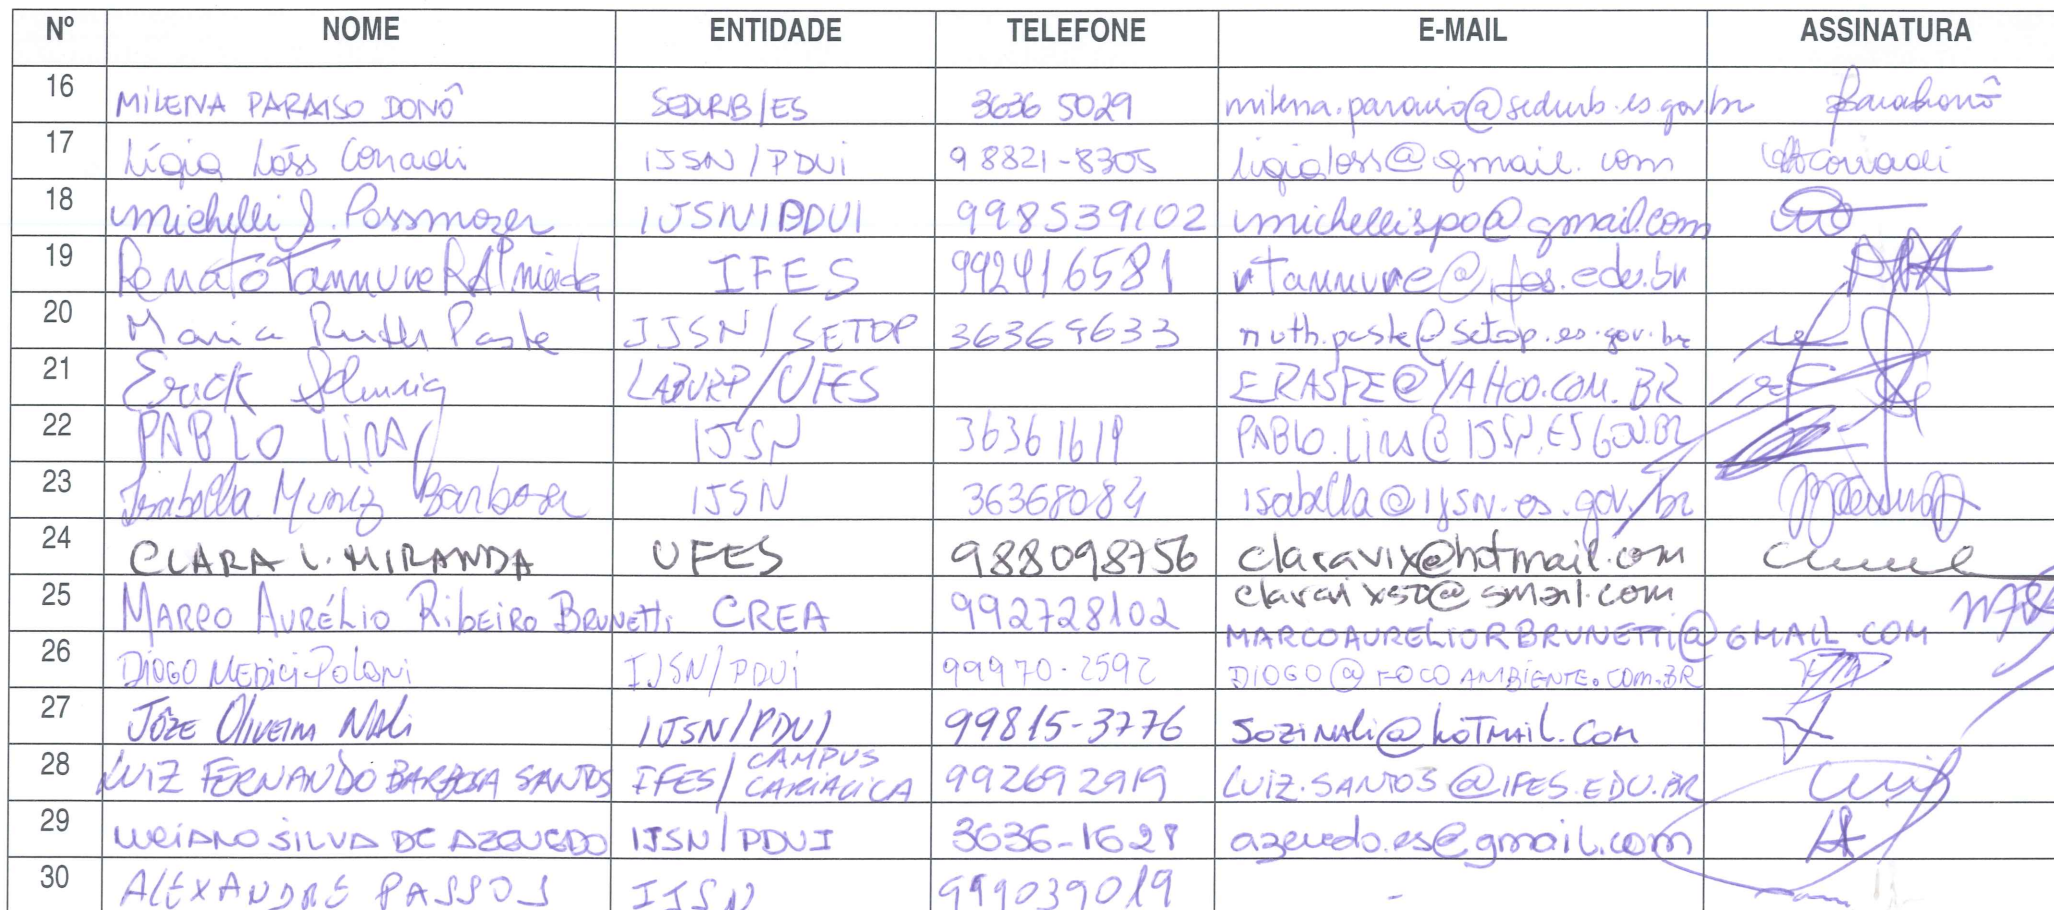 Nº NOME ENTIDADE TELEFONE E-MAIL ASSINATURA
16 MILENA PARAISO DONÔ SEDURB/ES 3636 5029 milena.paraiso@sedurb.es.gov.br
17 Lígia Löss Corradi IJSN/PDUI 9 8821-8305 ligialoss@gmail.com
18 Michelli S. Possmozer IJSN/PDUI 998539102 michellispo@gmail.com
19 Renato Tannure R Almeida IFES 992416581 rtannure@ifes.edu.br
20 Maria Ruth Paste IJSN/SETOP 36369633 ruth.paste@setop.es.gov.br
21 Erick LABURP/UFES ERASFE@YAHOO.COM.BR
22 PABLO LIRA IJSN 36361619 PABLO.LIRA@IJSN.ES.GOV.BR
23 Isabella Muniz Barbosa IJSN 36368084 isabella@ijsn.es.gov.br
24 CLARA L. MIRANDA UFES 988098756 claravix@hotmail.com
claravix50@gmail.com
25 MARCO AURÉLIO RibEiRO BRUNETTi CREA 992728102 MARCOAURELIORBRUNETTI@GMAIL.COM
26 DIOGO MEDICI POLONI IJSN/PDUI 99970-2592 DIOGO@FOCOAMBIENTE.COM.BR
27 JÔZE OLIVEIRA NALI IJSN/PDUI 99815-3776 JOZINALI@HOTMAIL.COM
28 LUIZ FERNANDO BARBOSA SANTOS IFES/CAMPUS CARIACICA 992692919 LUIZ.SANTOS@IFES.EDU.BR
29 LUCIANO SILVA DE AZEVEDO IJSN/PDUI 3636-1628 azevedo.es@gmail.com
30 ALEXANDRE PASSOS IJSN 999039019 -